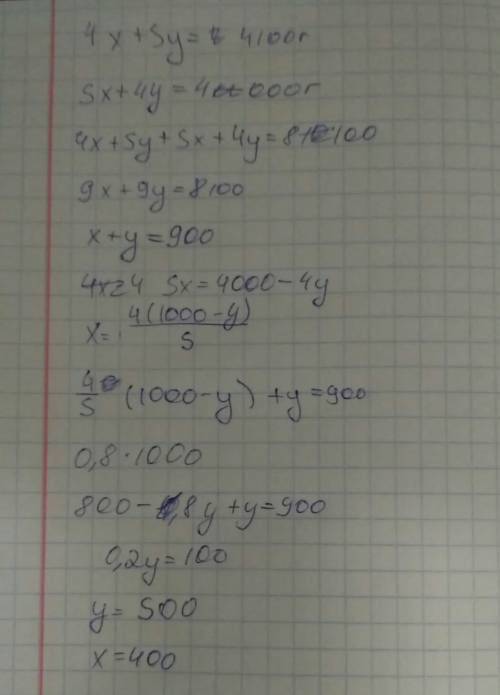 4x + 5y = 4100г
5x + 4y = 4000г
4x + 5y + 5x + 4y = 8100
9x + 9y = 8100
x + y = 900
4x=4 5x = 4000 - 4y
x = 4(1000 - y) / 5
4/5 (1000 - y) + y = 900
0,8 · 1000
800 - 0,8y + y = 900
0,2y = 100
y = 500
x = 400